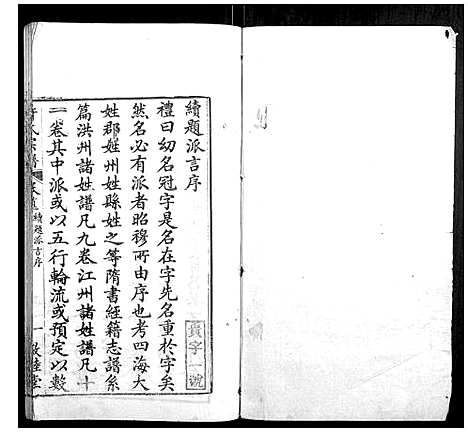 續題派言序
禮曰幼名冠字是名在字先名重於字矣
然名必有派者昭穆所由序也考四海大
姓郡姓州姓縣姓之等隋書經籍志譜系
篇洪州諸姓譜凡九卷江州諸姓譜凡十
一卷其中派或以五行輪流或預定以數
氏宗譜
續題派言序
一
敦睦堂
字一號